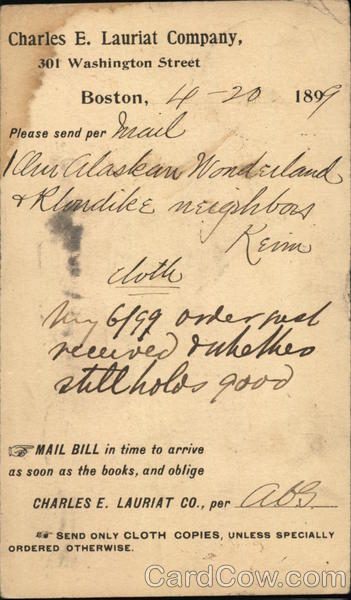 Charles E. Lauriat Company,
301 Washington Street
Boston, 4-20 1899
Please send per Mail
1 Our Alaskan Wonderland
& Klondike neighbors
Keim
cloth
My 6/99 order just
received & whether
still holds good
☞ MAIL BILL in time to arrive
as soon as the books, and oblige
CHARLES E. LAURIAT CO., per
☞ SEND ONLY CLOTH COPIES, UNLESS SPECIALLY
ORDERED OTHERWISE.
CardCow.com